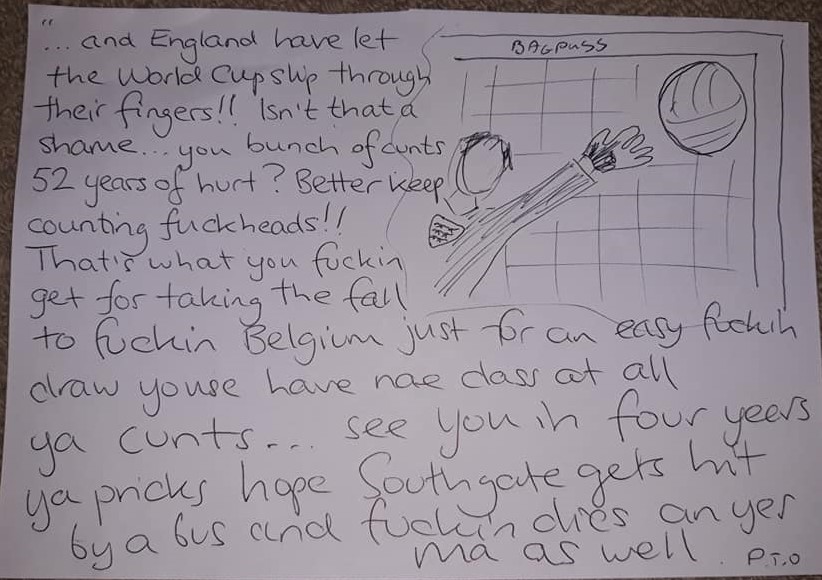 "
... and England have let
the World Cup slip through
their fingers!! Isn't that a
shame... you bunch of cunts
52 years of hurt? Better keep
counting fuckheads!!
That's what you fuckin
get for taking the fall
to fuckin Belgium just for an easy fuckin
draw youse have nae class at all
ya cunts... see you in four yeers
ya pricks hope Southgate gets hit
by a bus and fuckin dies an yer
ma as well. P.T.O
BAGPUSS